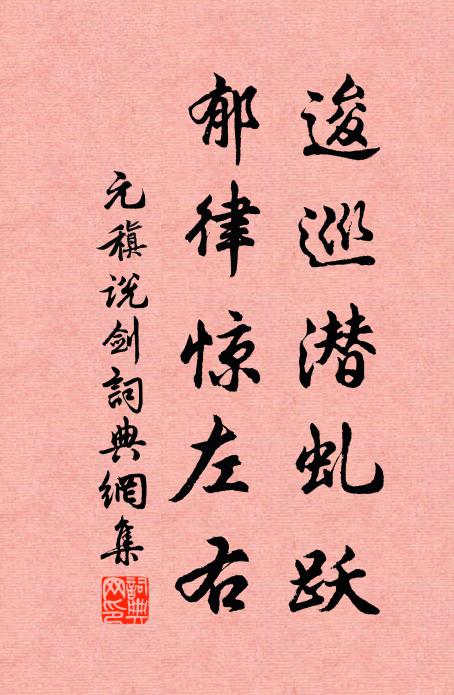 逡巡潜虬跃
郁律惊左右
元稹说剑詞典網集
詞典网印